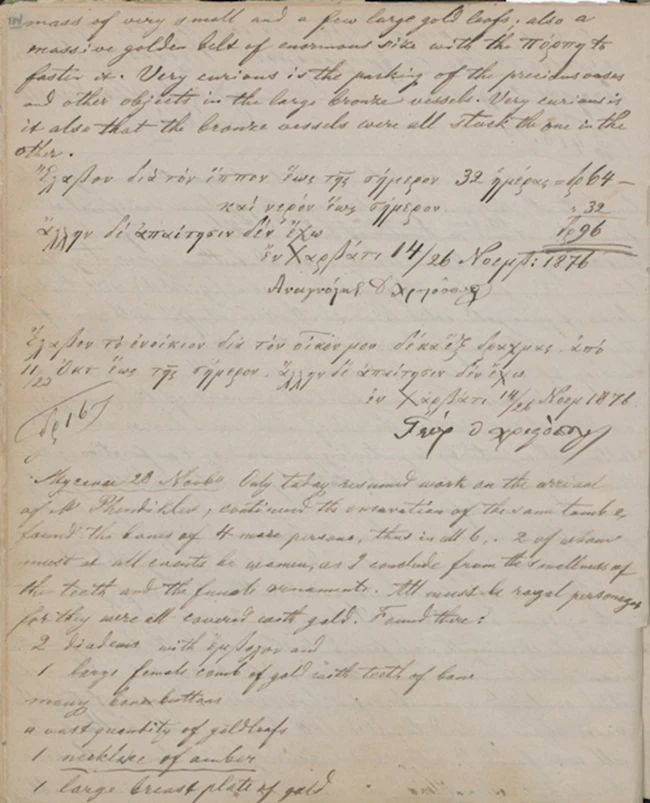 mass of very small and a few large gold leafs, also a
massive golden belt of enormous size with the πόρπη to
fasten it. Very curious is the packing of the precious vases
and other objects in the large bronze vessels. Very curious is
it also that the bronze vessels were all stuck the one in the
other.
Ἔλαβον διὰ τὸν ἵππον ἕως τῆς σήμερον 32 ἡμέρας = δρ 64 —
καὶ νερὸν ἕως σήμερον " 32
ἄλλην δὲ ἀπαίτησιν δὲν ἔχω δρ 96
ἐν Χαρβάτι 14/26 Νοεμβ: 1876
Ἔλαβον τὸ ἐνοίκιον διὰ τὸν οἶκόν μου δέκα ἓξ δραχμὰς ἀπὸ
11/23 Ὀκτ ἕως τῆς σήμερον. ἄλλην δὲ ἀπαίτησιν δὲν ἔχω
ἐν Χαρβάτι 14/26 Νοεμ 1876
δρ 16
Γεώρ
Mycenae 28 Novbr Only today resumed work on the arrival
of Mr Phendikles, continued the excavation of the same tomb &
found the bones of 4 more persons, thus in all 6, 2 of whom
must at all events be women, as I conclude from the smallness of
the teeth and the female ornaments. All must be royal personages
for they were all covered with gold. Found there:
2 diadems with ἔμβολον and
1 large female comb of gold with teeth of bone
many bone buttons
a vast quantity of goldleafs
1 necklace of amber
1 large breast plate of gold